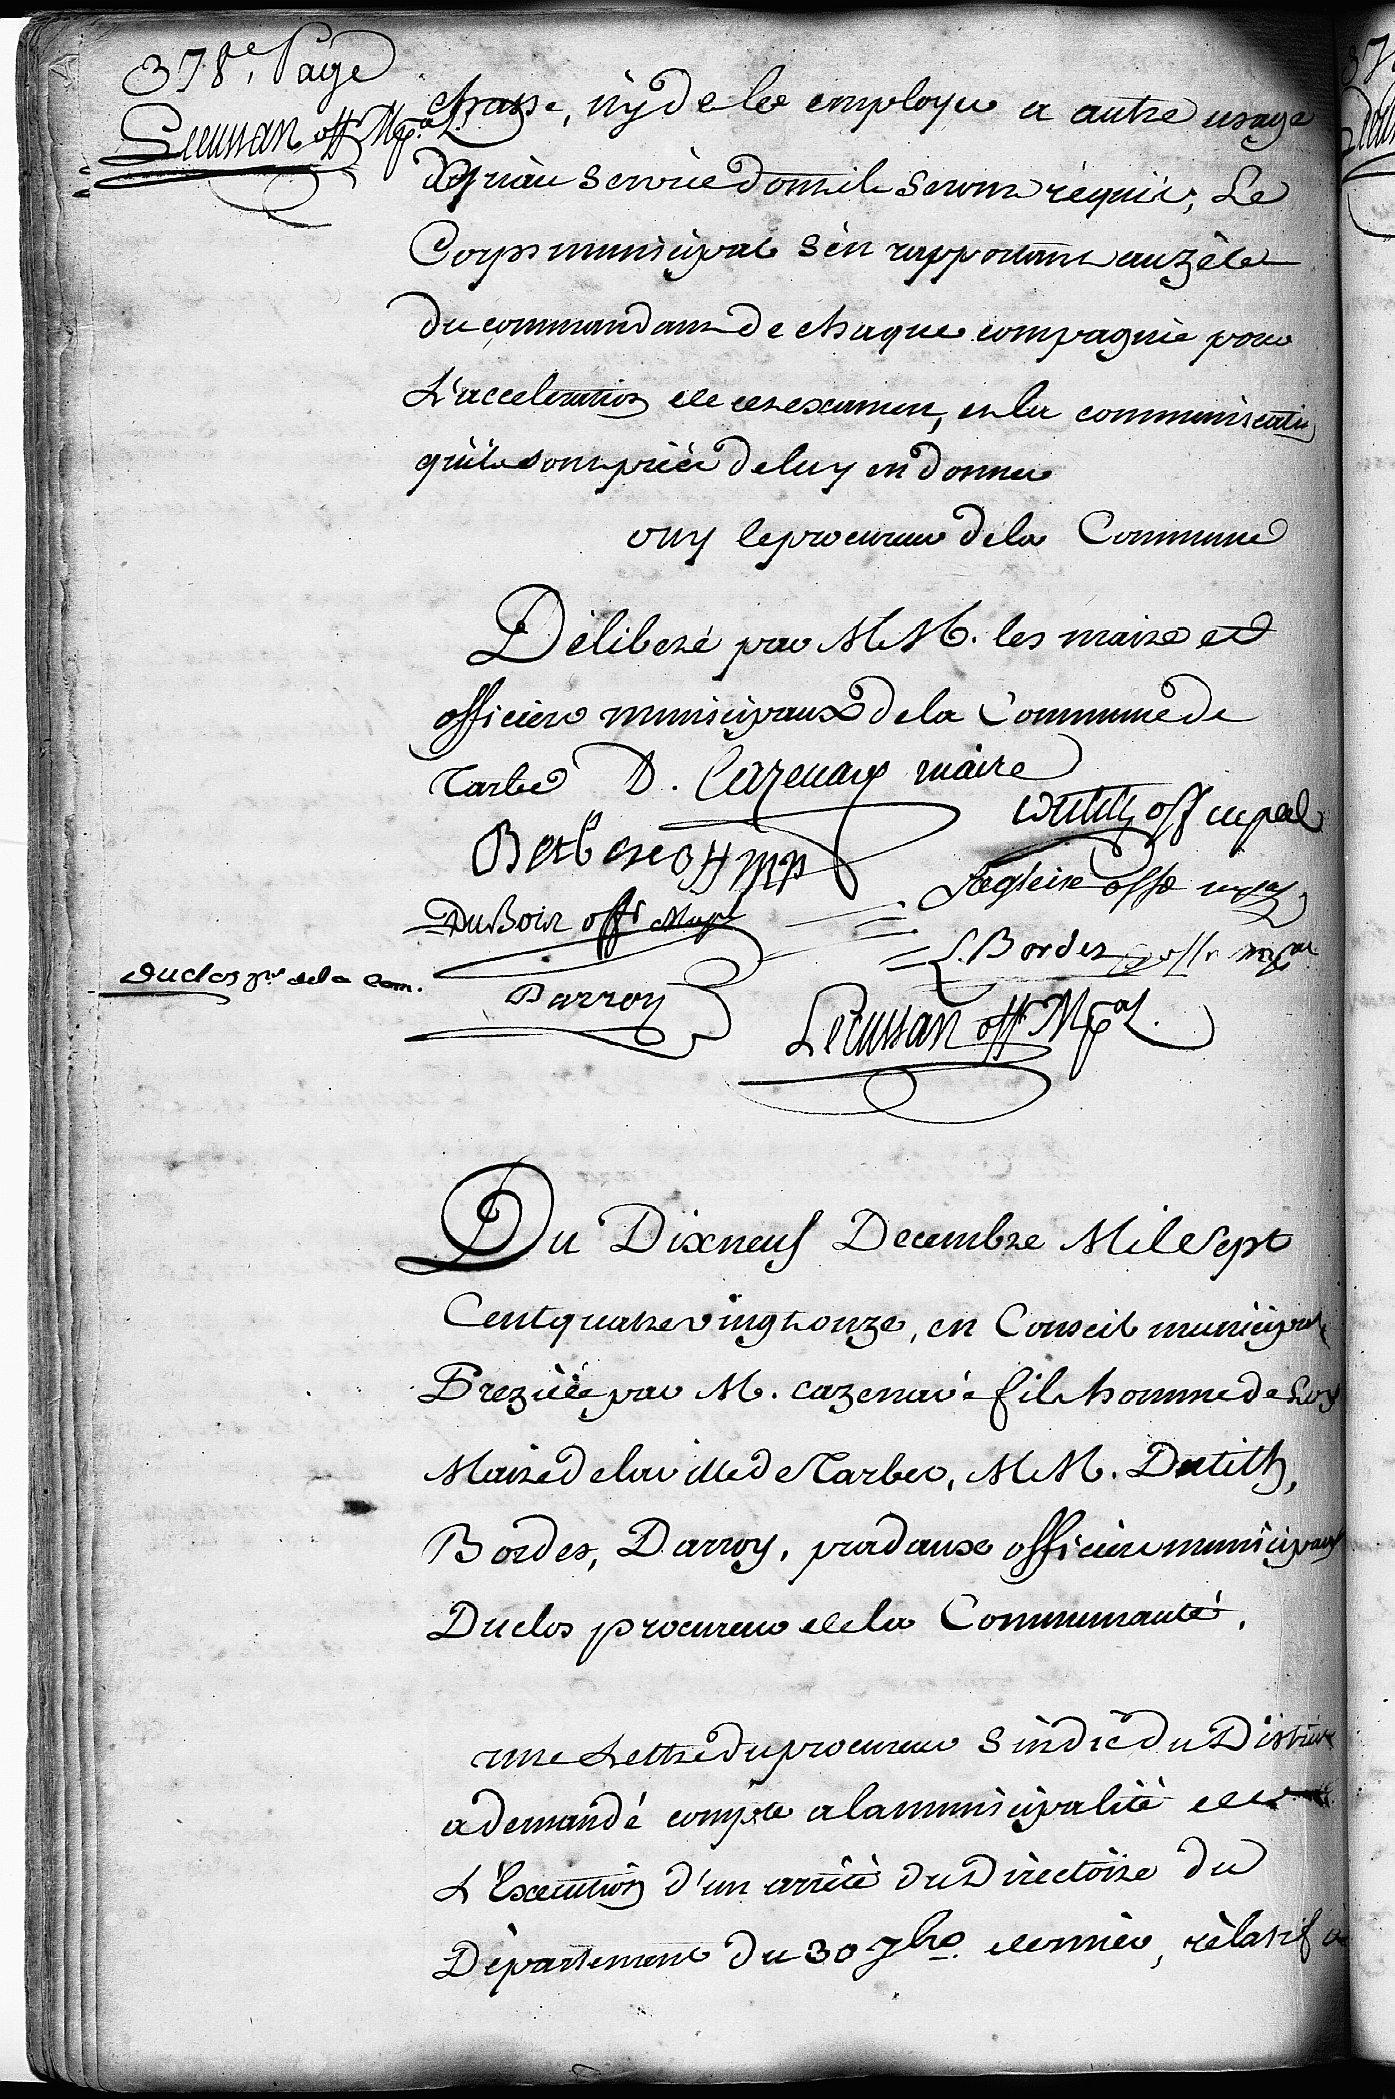 378e. Page
Lecussan off. Mpal.
chasse, ny de les employer a autre usage
qu'au service dont ils seront requis, Le
Corps municipal s'en rapportant au zèle
du commandant de chaque compagnie pour
L'acceleration de cet examen, et la communication
qu'ils sont priés de luy en donner
ouy le procureur de la Commune
Déliberé par MM. les maire et
officiers municipaux de la Commune de
Tarbes D. Cazenave maire
Dutilh off mpal
Berbere off mp
Lagleise offr mpal
DuBois offr Mupl
L. Bordes offr mpal
Duclos pr. de la Com.
Darroy
Lecussan off. Mpal.
Du Dixneuf Decembre Mil Sept
Cent quatre vingt onze, en Conseil municipal
Prezidé par M. cazenave fils homme de Loy
Maire de la ville de Tarbes, MM. Dutilh,
Bordes, Darroy, officiers municipaux
Duclos procureur de la Communauté.
une Lettre du procureur Sindic du District
a demandé compte a la municipalité de
L'Execution d'un arrêté du Directoire du
Département du 30 7bre. dernier, rélatif à